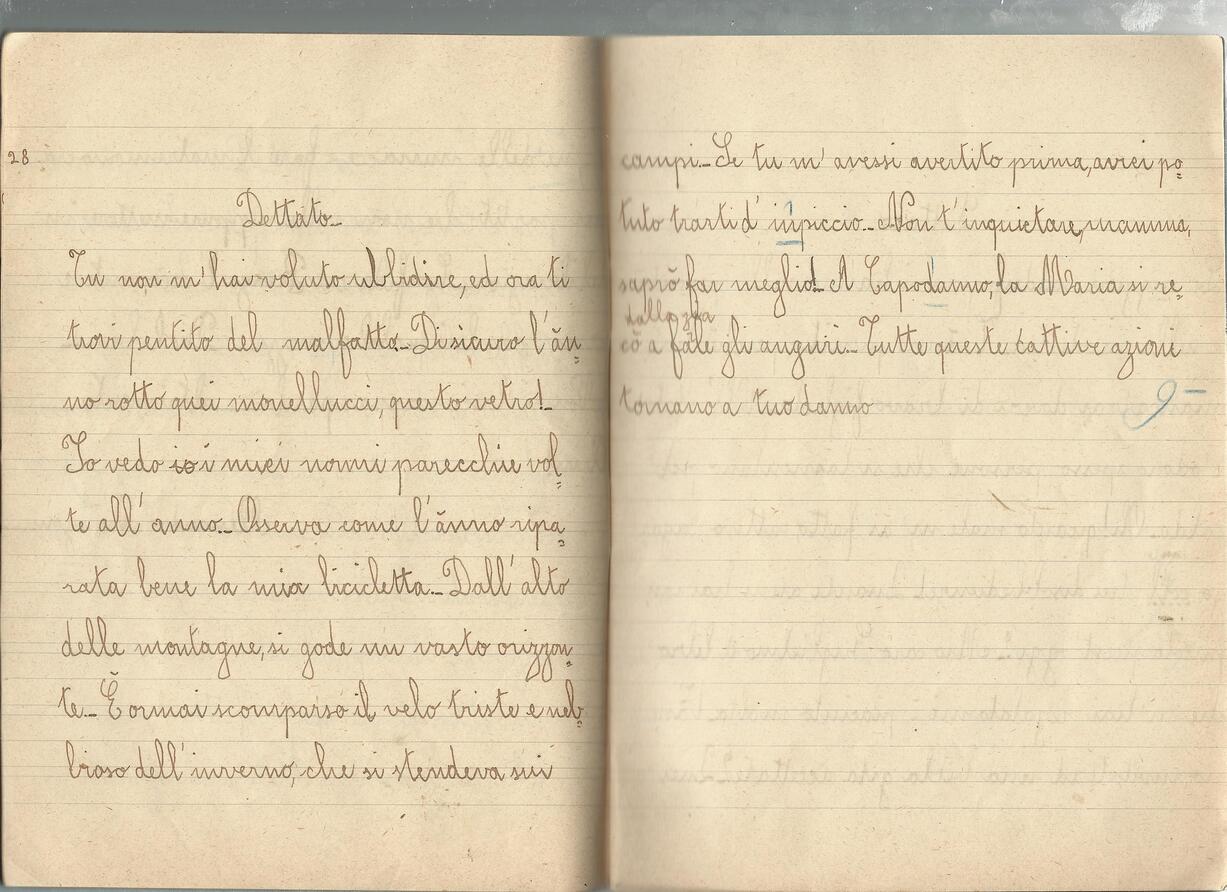 28
Dettato_
Tu non m'hai voluto ubbidire, ed ora ti
trovi pentito del malfatto_ Di sicuro l'ăn=
no rotto quei monellucci, questo vetro!_
Io vedo io i miei nonni parecchie vol=
te all'anno_ Osserva come l'ănno ripa=
rata bene la mia bicicletta_ Dall'alto
delle montagne, si gode un vasto orizzon=
te_ Ĕ ormai scomparso il velo triste e neb=
bioso dell'inverno, che si stendeva sui
campi_ Se tu m'avessi avertito prima, avrei po=
tuto trarti d'inpiccio_ Non t'inquietare, mamma,
saprŏ far meglio!_ A Capodanno, la Maria si re=
dalla zia
cŏ a fale gli auguri_ Tutte queste cattive azioni
tornano a tuo danno
9-